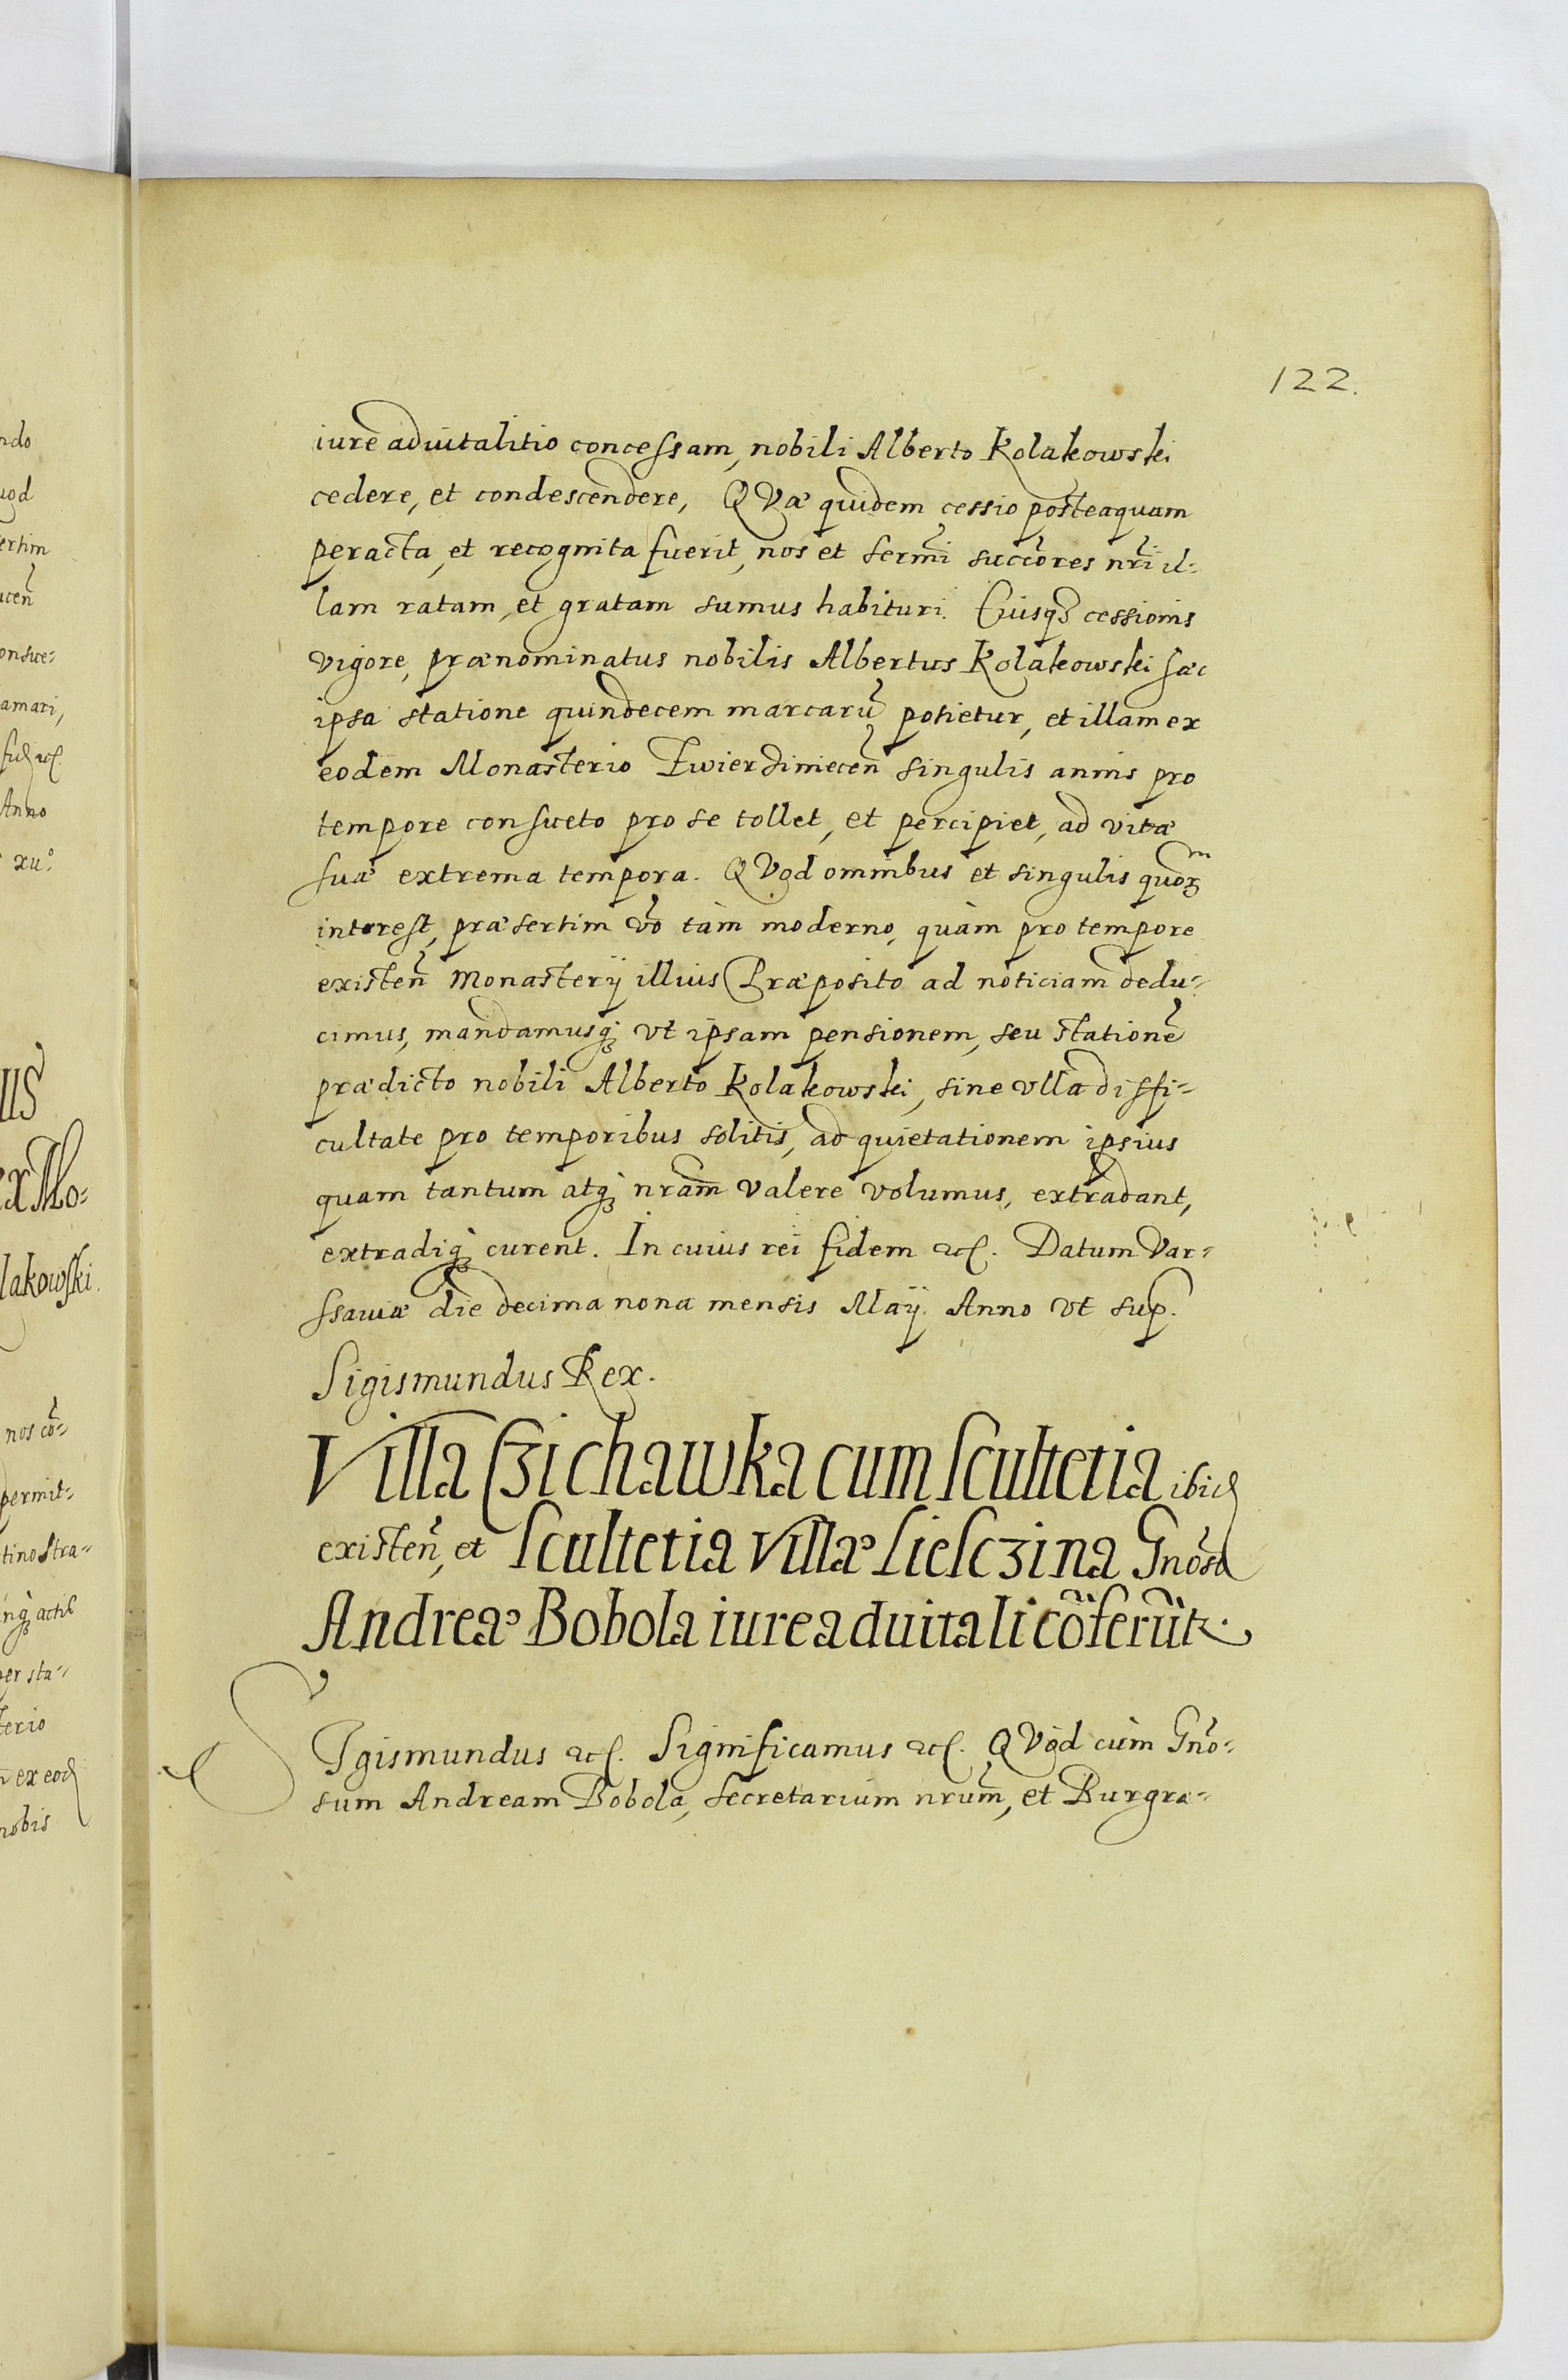 122.
iure aduitalitio concessam, nobili Alberto Kolakowski
cedere, et condescendere, QVæ quidem cessio posteaquam
peracta, et recognita fuerit, nos et sermi succōres nri il-
lam ratam, et gratam sumus habituri. Cuiusq3 cessionis
vigore, prænominatus nobilis Albertus Kolakowski hac
ipsa statione quindecem marcarū potietur, et illam ex
eodem Monasterio Zwierzinecen̄ singulis annis pro
tempore consueto pro se tollet, et percipiet, ad vitæ
suæ extrema tempora. QVod omnibus et singulis quorꝫ
interest, præsertim vō tàm moderno, quàm pro tempore
existen̄ Monasterij illius Præposito ad noticiam dedu-
cimus, mandamusqꝫ vt ipsam pensionem, seu stationē
prædicto nobili Alberto Kolakowski, sine vlla diffi-
cultate pro temporibus solitis, ad quietationem ipsius
quam tantum atqꝫ nram̄ valere volumus, extradant,
extradiqꝫ curent. In cuius rei fidem etc. Datum Var-
ssauiæ die decima nona mensis Maij. Anno vt sup.
Sigismundus Rex.
Villa Czichawka cum scultetia ibid
existen̄, et scultetia villæ Liesczina Gnōso
Andreæ Bobola iure aduitali cōferūt.
SIgismundus etc. Significamus etc. QVod cùm Gnō-
sum Andream Bobola, secretarium nrum̄, et Burgra-
ndo
uod
ertim
onsue-
amari,
Anno
xu.o
IIS
ex Mo-
lakowski.
nos cō-
permit-
tino stra-
er sta-
terio
ex eod
nobis